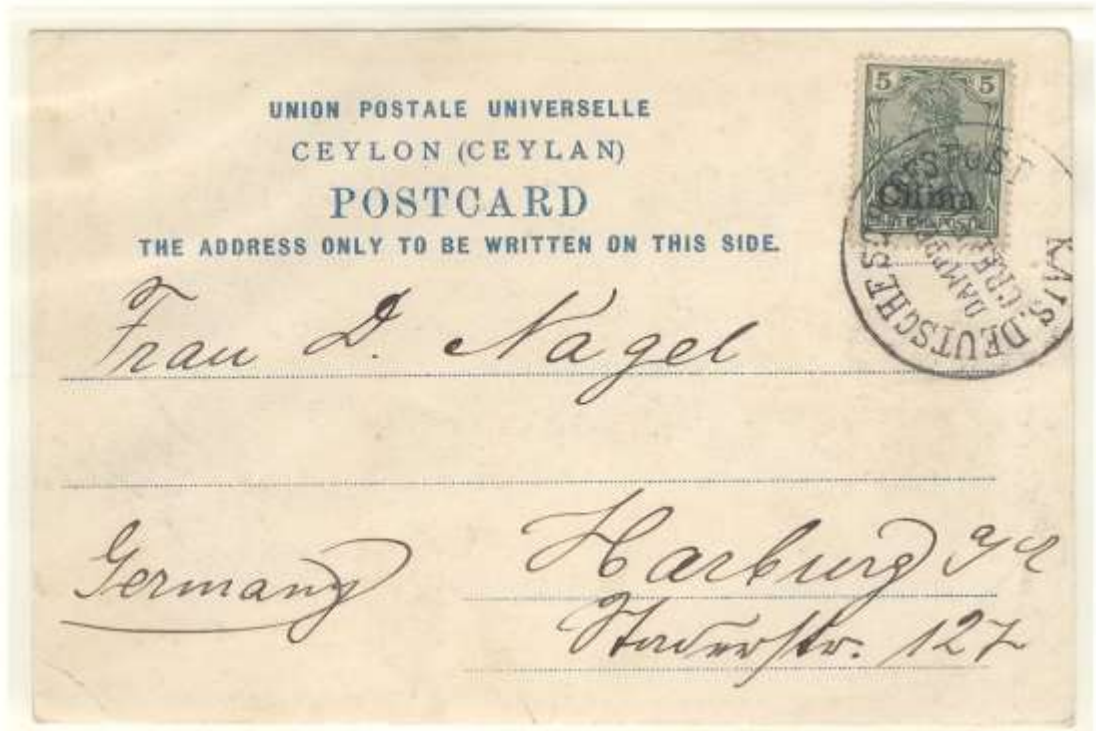 UNION POSTALE UNIVERSELLE
CEYLON (CEYLAN)
POSTCARD
THE ADDRESS ONLY TO BE WRITTEN ON THIS SIDE.
5 5
China
KAIS. DEUTSCHE
Frau D. Nagel
Harburg a/E
Germany
Staderstr. 127